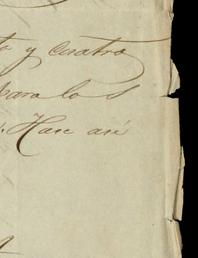 y cuatro
para los
Hase asi